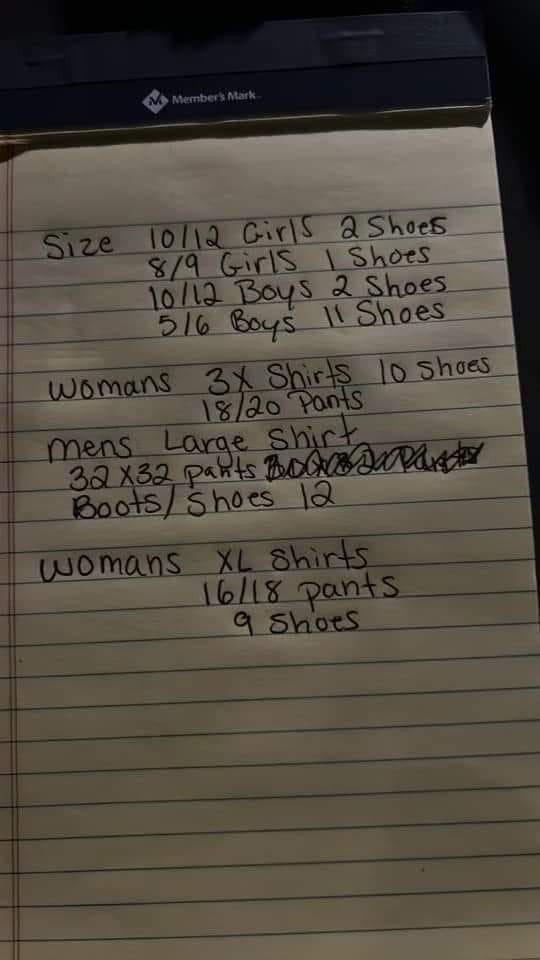 Member's Mark
Size 10/12 Girls 2 Shoes
8/9 Girls 1 Shoes
10/12 Boys 2 Shoes
5/6 Boys 11 Shoes
womans 3X Shirts 10 Shoes
18/20 Pants
mens Large Shirt
32X32 pants
Boots/Shoes 12
womans XL Shirts
16/18 pants
9 Shoes